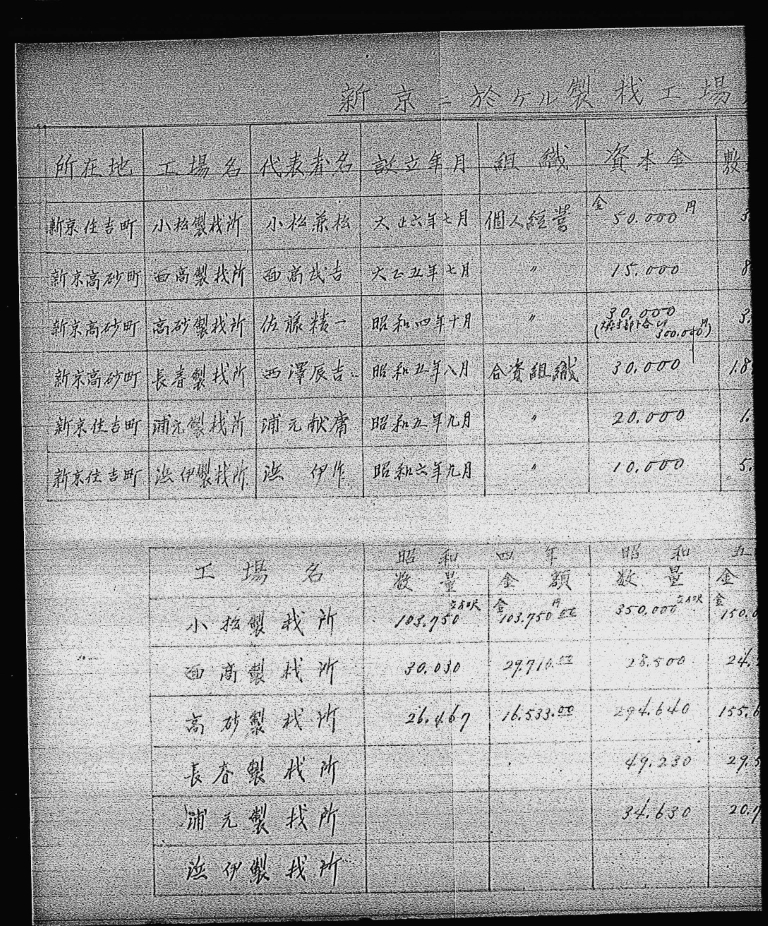 新京ニ於ケル製材工場
所在地 工場名 代表者名 設立年月 組織 資本金 数
新京住吉町 小松製材所 小松兼松 大正六年七月 個人経営 金50.000円 3
新京高砂町 西高製材所 西高武吉 大正五年七月 〃 15.000 8
新京高砂町 高砂製材所 佐藤精一 昭和四年十月 〃 30.000 3.
300.000円)
新京高砂町 長春製材所 西澤辰吉 昭和五年八月 合資組織 30.000 1.8
新京住吉町 浦元製材所 浦元献 昭和五年九月 〃 20.000 1.
新京住吉町 浜伊製材所 浜 伊作 昭和六年九月 〃 10.000 5.
工場名 昭和四年 昭和五
数量 金額 数量 金
小松製材所 103.750立方尺 金103.750円00 350.000立方尺 金150.0
西高製材所 30.030 29.710.00 28.500 24.
高砂製材所 26.467 16.533.00 294.640 155.6
長春製材所 49.230 29.5
浦元製材所 34.630 20.7
浜伊製材所